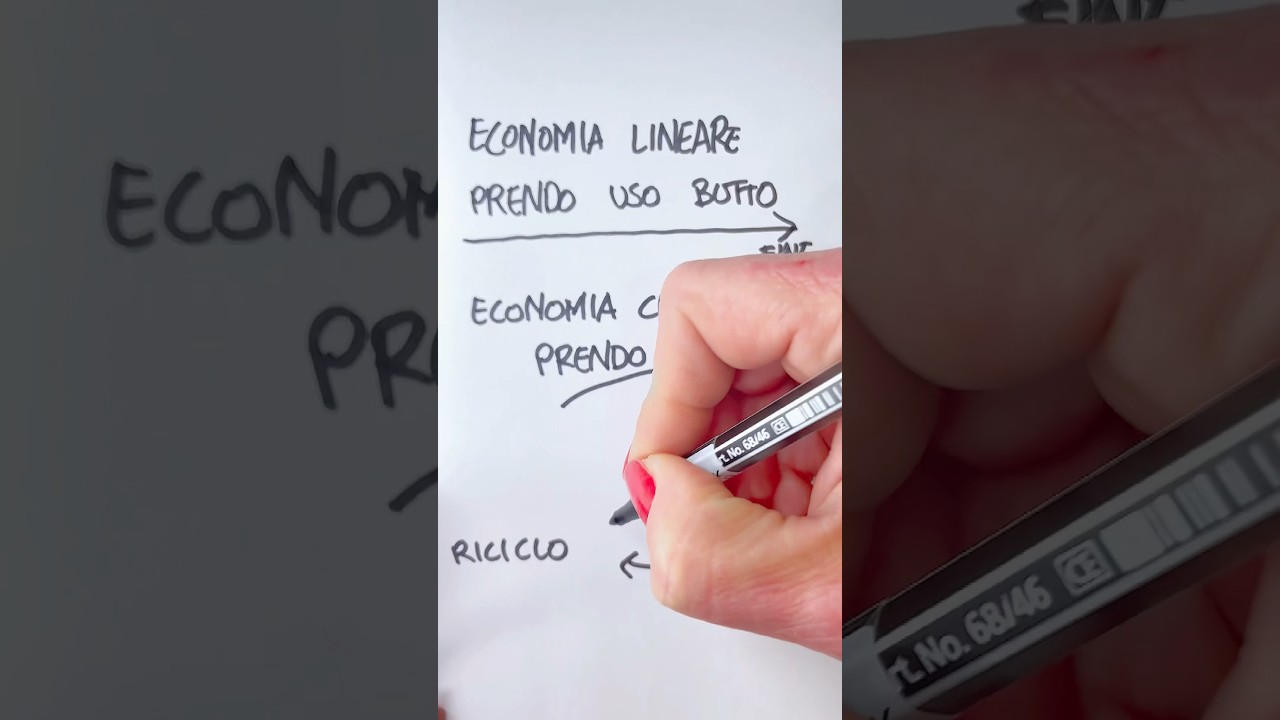 ECONOMIA LINEARE
PRENDO USO BUTTO
ECONOMIA C
PRENDO
rt. No. 68/46 CE
RICICLO